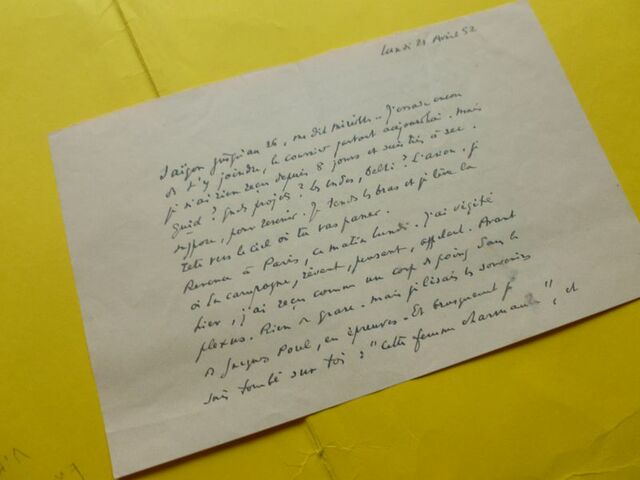 Lundi 21 Avril 52
Saïgon jusqu'au 26, me dit Mireille. J'essaie encore
de t'y joindre, le courrier partant aujourd'hui. Mais
je n'ai rien reçu depuis 8 jours et suis très à sec.
Quid ? Quels projets ? Les Indes, Delhi ? L'avion, je
suppose, pour revenir. Je tends les bras et je lève la
tête vers le ciel où tu vas passer.
Revenu à Paris, ce matin lundi. J'ai végété
à la campagne, rêvant, pensant,
hier, j'ai reçu comme un coup de poing dans le
plexus. Rien de grave. Mais je lisais les souvenirs
de Jacques Porel, en épreuves. Et brusquement je
suis tombé sur toi : "cette femme charmante", et